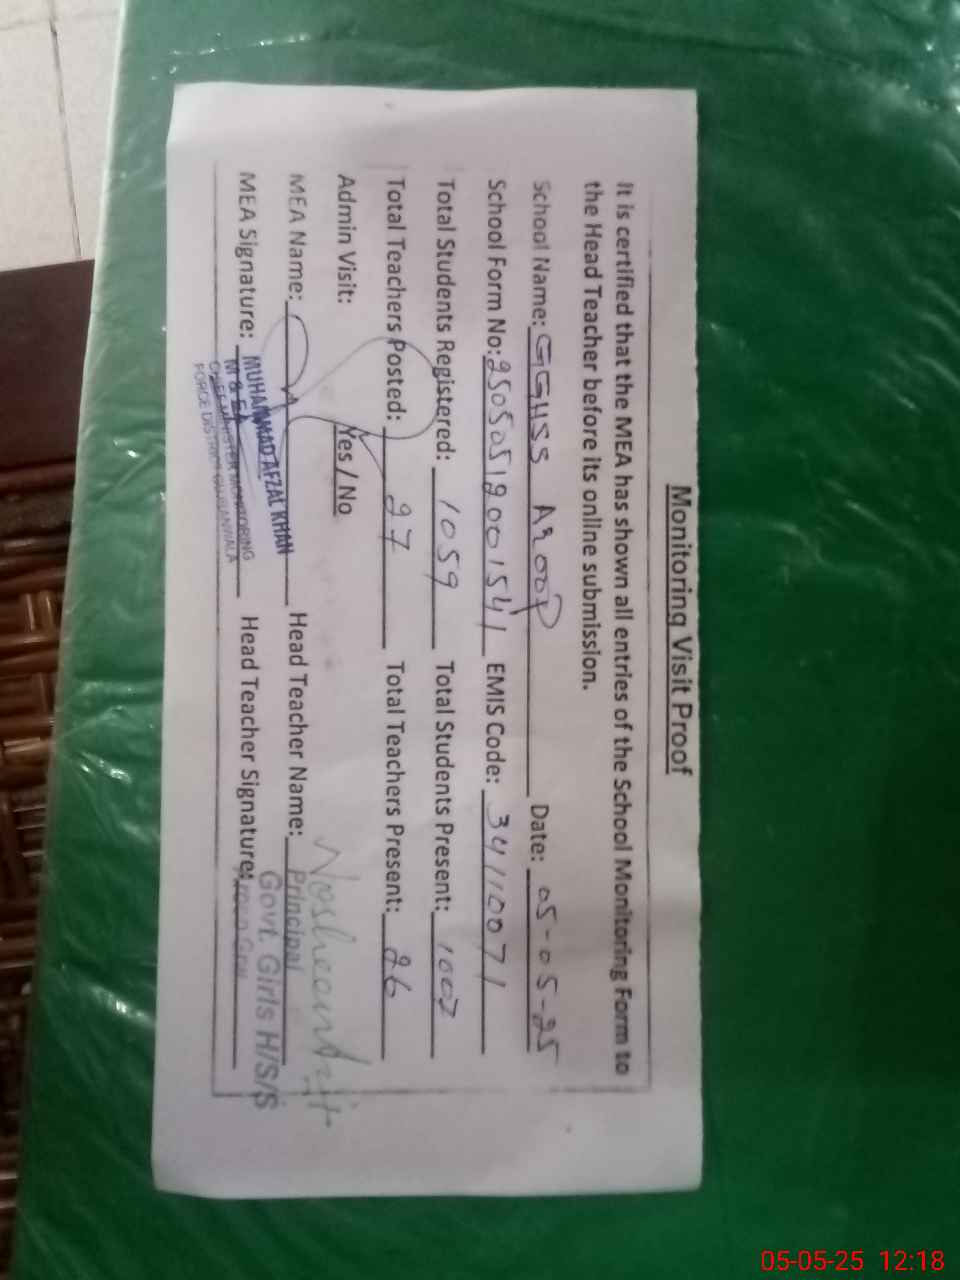 Monitoring Visit Proof
It is certified that the MEA has shown all entries of the School Monitoring Form to
the Head Teacher before its online submission.
School Name: GGHSS Aroop Date: 05-05-25
School Form No: 25050519001541 EMIS Code: 34110071
Total Students Registered: 1059 Total Students Present: 1007
Total Teachers Posted: 27 Total Teachers Present: 26
Admin Visit: Yes / No
MEA Name: Head Teacher Name:
MEA Signature: Head Teacher Signature:
MUHAMMAD AFZAL KHAN
M & EA
CHIEF MINISTER MONITORING
FORCE DISTRICT GUJRANWALA
Principal
Govt. Girls H/S/S
05-05-25 12:18